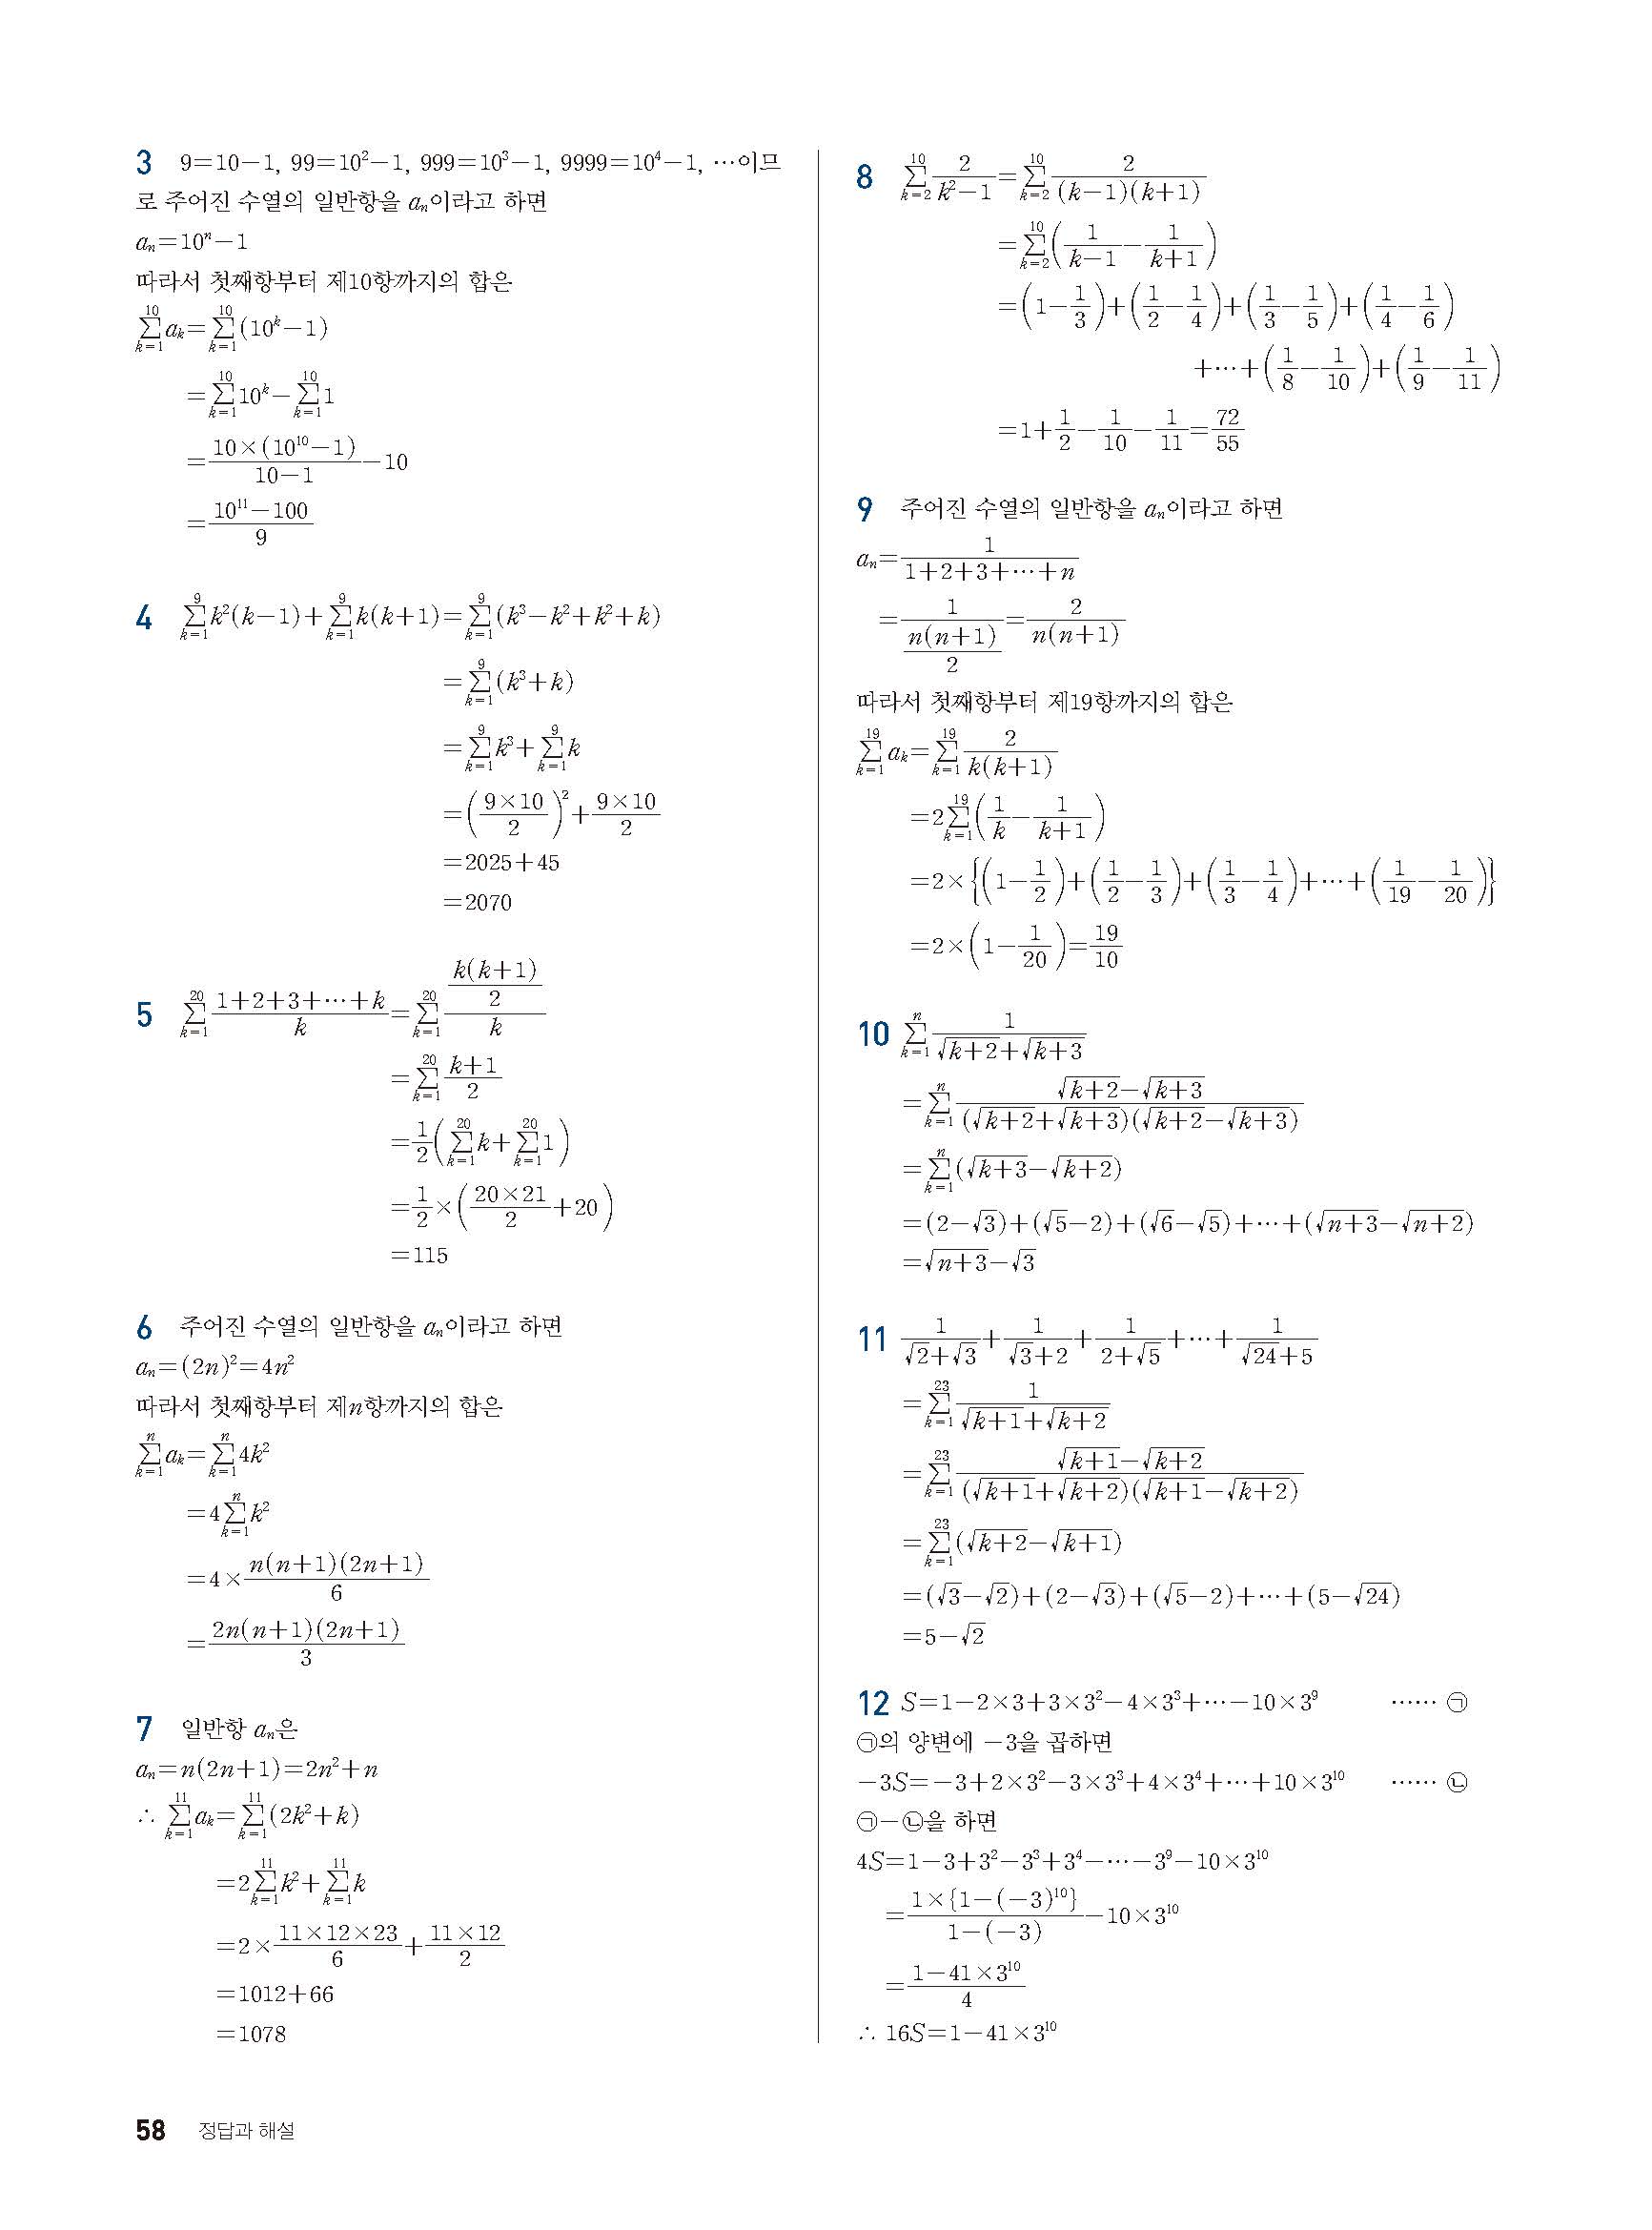 3 9=10-1, 99=10²-1, 999=10³-1, 9999=10⁴-1, …이므
로 주어진 수열의 일반항을 aₙ이라고 하면
aₙ=10ⁿ-1
따라서 첫째항부터 제10항까지의 합은
∑_{k=1}^{10} a_k=∑_{k=1}^{10}(10^k-1)
=∑_{k=1}^{10}10^k-∑_{k=1}^{10}1
=\frac{10×(10^{10}-1)}{10-1}-10
=\frac{10^{11}-100}{9}
4 ∑_{k=1}^{9}k²(k-1)+∑_{k=1}^{9}k(k+1)=∑_{k=1}^{9}(k³-k²+k²+k)
=∑_{k=1}^{9}(k³+k)
=∑_{k=1}^{9}k³+∑_{k=1}^{9}k
=(\frac{9×10}{2})²+\frac{9×10}{2}
=2025+45
=2070
5 ∑_{k=1}^{20}\frac{1+2+3+…+k}{k}=∑_{k=1}^{20}\frac{\frac{k(k+1)}{2}}{k}
=∑_{k=1}^{20}\frac{k+1}{2}
=\frac{1}{2}(∑_{k=1}^{20}k+∑_{k=1}^{20}1)
=\frac{1}{2}×(\frac{20×21}{2}+20)
=115
6 주어진 수열의 일반항을 aₙ이라고 하면
aₙ=(2n)²=4n²
따라서 첫째항부터 제n항까지의 합은
∑_{k=1}^{n}a_k=∑_{k=1}^{n}4k²
=4∑_{k=1}^{n}k²
=4×\frac{n(n+1)(2n+1)}{6}
=\frac{2n(n+1)(2n+1)}{3}
7 일반항 aₙ은
aₙ=n(2n+1)=2n²+n
∴ ∑_{k=1}^{11}a_k=∑_{k=1}^{11}(2k²+k)
=2∑_{k=1}^{11}k²+∑_{k=1}^{11}k
=2×\frac{11×12×23}{6}+\frac{11×12}{2}
=1012+66
=1078
8 ∑_{k=2}^{10}\frac{2}{k²-1}=∑_{k=2}^{10}\frac{2}{(k-1)(k+1)}
=∑_{k=2}^{10}(\frac{1}{k-1}-\frac{1}{k+1})
=(1-\frac{1}{3})+(\frac{1}{2}-\frac{1}{4})+(\frac{1}{3}-\frac{1}{5})+(\frac{1}{4}-\frac{1}{6})
+…+(\frac{1}{8}-\frac{1}{10})+(\frac{1}{9}-\frac{1}{11})
=1+\frac{1}{2}-\frac{1}{10}-\frac{1}{11}=\frac{72}{55}
9 주어진 수열의 일반항을 aₙ이라고 하면
aₙ=\frac{1}{1+2+3+…+n}
=\frac{1}{\frac{n(n+1)}{2}}=\frac{2}{n(n+1)}
따라서 첫째항부터 제19항까지의 합은
∑_{k=1}^{19}a_k=∑_{k=1}^{19}\frac{2}{k(k+1)}
=2∑_{k=1}^{19}(\frac{1}{k}-\frac{1}{k+1})
=2×{(1-\frac{1}{2})+(\frac{1}{2}-\frac{1}{3})+(\frac{1}{3}-\frac{1}{4})+…+(\frac{1}{19}-\frac{1}{20})}
=2×(1-\frac{1}{20})=\frac{19}{10}
10 ∑_{k=1}^{n}\frac{1}{√(k+2)+√(k+3)}
=∑_{k=1}^{n}\frac{√(k+2)-√(k+3)}{(√(k+2)+√(k+3))(√(k+2)-√(k+3))}
=∑_{k=1}^{n}(√(k+3)-√(k+2))
=(2-√3)+(√5-2)+(√6-√5)+…+(√(n+3)-√(n+2))
=√(n+3)-√3
11 \frac{1}{√2+√3}+\frac{1}{√3+2}+\frac{1}{2+√5}+…+\frac{1}{√24+5}
=∑_{k=1}^{23}\frac{1}{√(k+1)+√(k+2)}
=∑_{k=1}^{23}\frac{√(k+1)-√(k+2)}{(√(k+1)+√(k+2))(√(k+1)-√(k+2))}
=∑_{k=1}^{23}(√(k+2)-√(k+1))
=(√3-√2)+(2-√3)+(√5-2)+…+(5-√24)
=5-√2
12 S=1-2×3+3×3²-4×3³+…-10×3⁹ …… ㉠
㉠의 양변에 -3을 곱하면
-3S=-3+2×3²-3×3³+4×3⁴+…+10×3¹⁰ …… ㉡
㉠-㉡을 하면
4S=1-3+3²-3³+3⁴-…-3⁹-10×3¹⁰
=\frac{1×{1-(-3)¹⁰}}{1-(-3)}-10×3¹⁰
=\frac{1-41×3¹⁰}{4}
∴ 16S=1-41×3¹⁰
58 정답과 해설